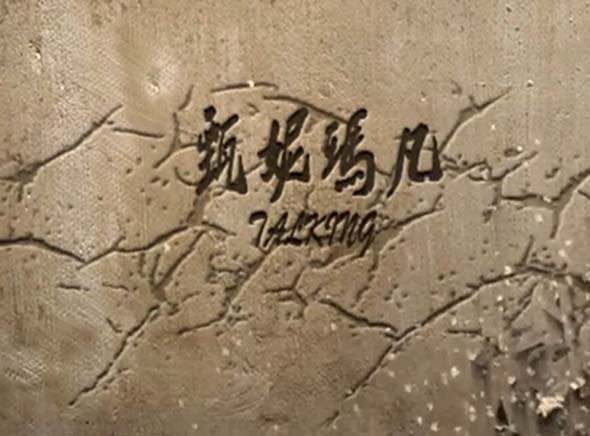 甄妮瑪凡
TALKING